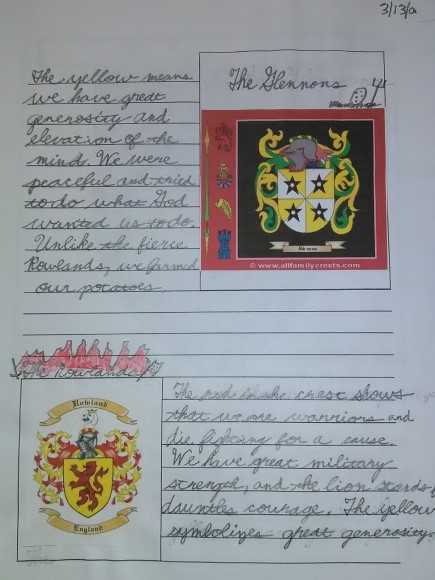 3/13/a
The yellow means
we have great
generosity and
elevation of the
mind. We were
peaceful and tried
to do what God
wanted us to do.
Unlike the fierce
Rowlands, we farmed
our potatoes.
The Glennons
© www.allfamilycrests.com
The Rowlands
Rowland
England
The red in the crest shows
that we are warriors and
die fighting for a cause.
We have great military
strength, and the lion stands f
dauntles courage. The yellow
symbolizes great generosity.